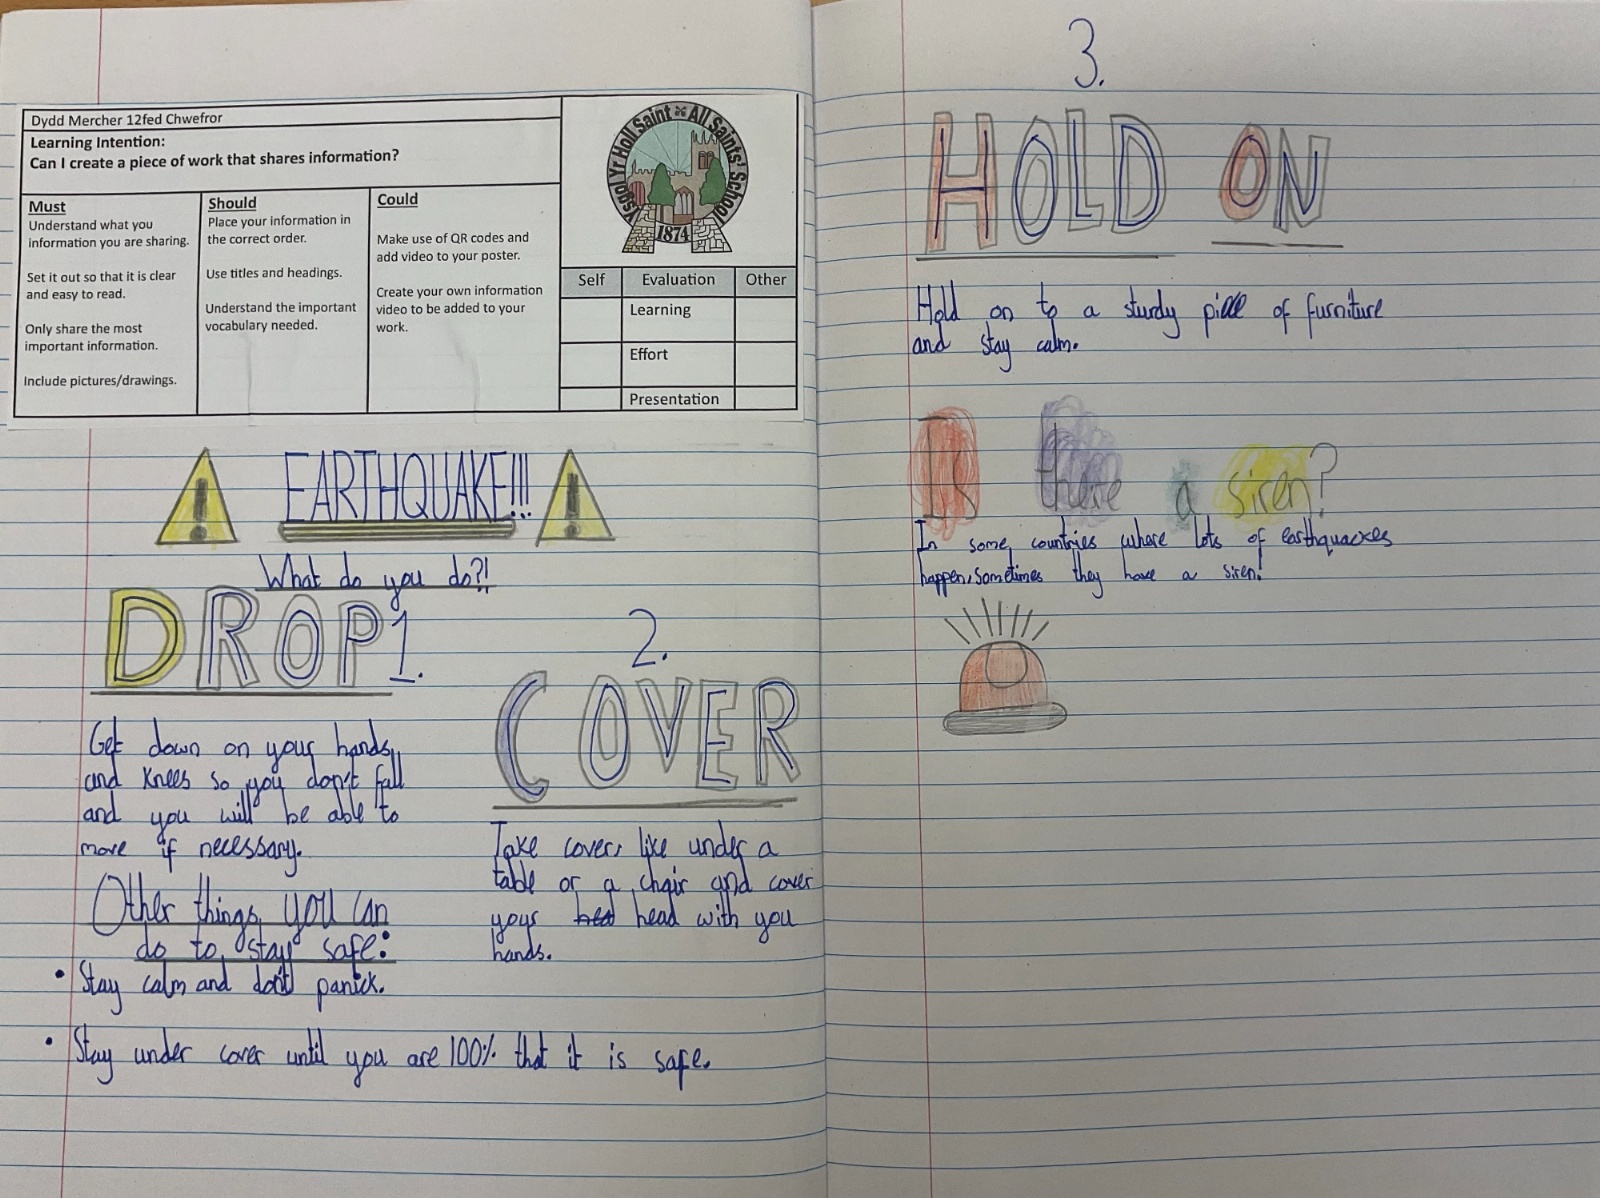 Dydd Mercher 12fed Chwefror
Learning Intention:
Can I create a piece of work that shares information?
Must
Understand what you
information you are sharing.
Set it out so that it is clear
and easy to read.
Only share the most
important information.
Include pictures/drawings.
Should
Place your information in
the correct order.
Use titles and headings.
Understand the important
vocabulary needed.
Could
Make use of QR codes and
add video to your poster.
Create your own information
video to be added to your
work.
Ysgol Yr Holl Saint All Saints' School
1874
Self Evaluation Other
Learning
Effort
Presentation
! EARTHQUAKE!!! !
What do you do?!
DROP 1.
Get down on your hands
and knees so you don't fall
and you will be able to
move if necessary.
2.
COVER
Take cover, like under a
table or a chair and cover
your hed head with you
hands.
Other things you can
do to stay safe:
• Stay calm and don't panick.
• Stay under cover until you are 100% that it is safe.
3.
HOLD ON
Hold on to a sturdy piece of furniture
and stay calm.
Is there a siren?
In some countries where lots of earthquackes
happen, sometimes they have a siren!